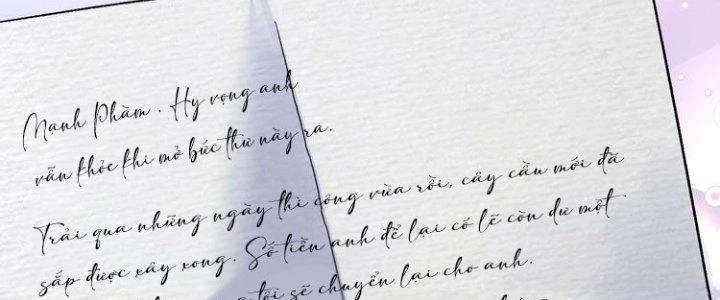 Mạnh Phàm. Hy vọng anh
vẫn khỏe khi mở bức thư này ra.
Trải qua những ngày thi công vừa rồi, cây cầu mới đã
sắp được xây xong. Số tiền anh để lại có lẽ còn dư một
tôi sẽ chuyển lại cho anh.